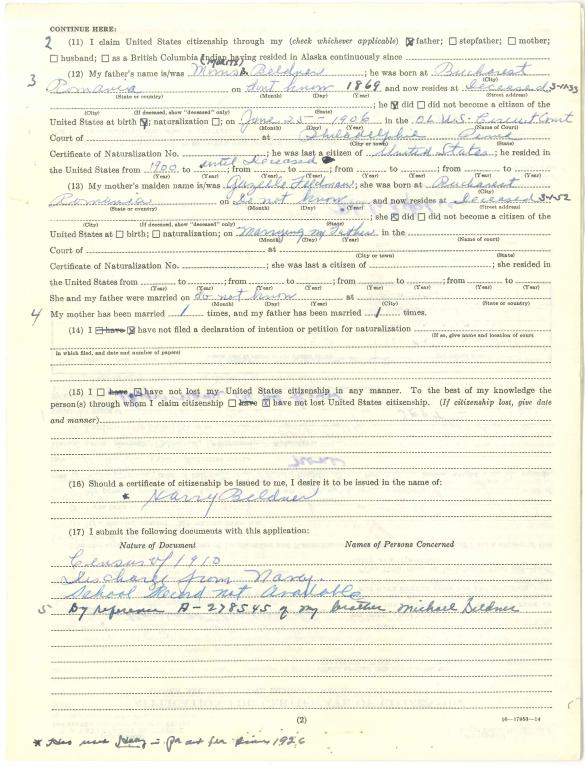 CONTINUE HERE:
2 (11) I claim United States citizenship through my (check whichever applicable) ☒ father; ☐ stepfather; ☐ mother;
☐ husband; ☐ as a British Columbia Indian having resided in Alaska continuously since
(Morris)
3 (12) My father's name is/was Morris Beldner ; he was born at Bucharest
(City)
Romania on don't know 1869 and now resides at deceased 3-1-33
(State or country) (Month) (Day) (Year) (Street address)
; he ☒ did ☐ did not become a citizen of the
(City) (If deceased, show "deceased" only) (State)
United States at birth ☒; naturalization ☐; on June 25 - 1906 in the U.S. Circuit Court
(Month) (Day) (Year) (Name of Court)
Court of at Philadelphia Penna
(City or town) (State)
Certificate of Naturalization No. ; he was last a citizen of United States ; he resided in
the United States from 1900 to until Deceased ; from to ; from to ; from to
(Year) (Year) (Year) (Year) (Year) (Year) (Year) (Year)
(13) My mother's maiden name is/was Feldman ; she was born at Bucharest
(City)
Romania on Do not know and now resides at deceased 3-1-52
(State or country) (Month) (Day) (Year) (Street address)
; she ☒ did ☐ did not become a citizen of the
(City) (If deceased, show "deceased" only) (State)
United States at ☐ birth; ☐ naturalization; on Marrying my Father in the
(Month) (Day) (Year) (Name of court)
Court of at
(City or town) (State)
Certificate of Naturalization No. ; she was last a citizen of ; she resided in
the United States from to ; from to ; from to ; from to
(Year) (Year) (Year) (Year) (Year) (Year) (Year) (Year)
She and my father were married on do not know at
(Month) (Day) (Year) (City) (State or country)
4 My mother has been married 1 times, and my father has been married 1 times.
(14) I ☐ have ☒ have not filed a declaration of intention or petition for naturalization
(If so, give name and location of court
in which filed, and date and number of papers)
(15) I ☐ have ☒ have not lost my United States citizenship in any manner. To the best of my knowledge the
person(s) through whom I claim citizenship ☐ have ☒ have not lost United States citizenship. (If citizenship lost, give date
and manner)
(16) Should a certificate of citizenship be issued to me, I desire it to be issued in the name of:
* Harry Beldner
(17) I submit the following documents with this application:
Nature of Document Names of Persons Concerned
Census of 1910
Discharge from Navy.
School Record not Available
5 By reference A-278545 of my brother Michael Beldner
(2) 16—17953—14
* Has used Harry since 1926